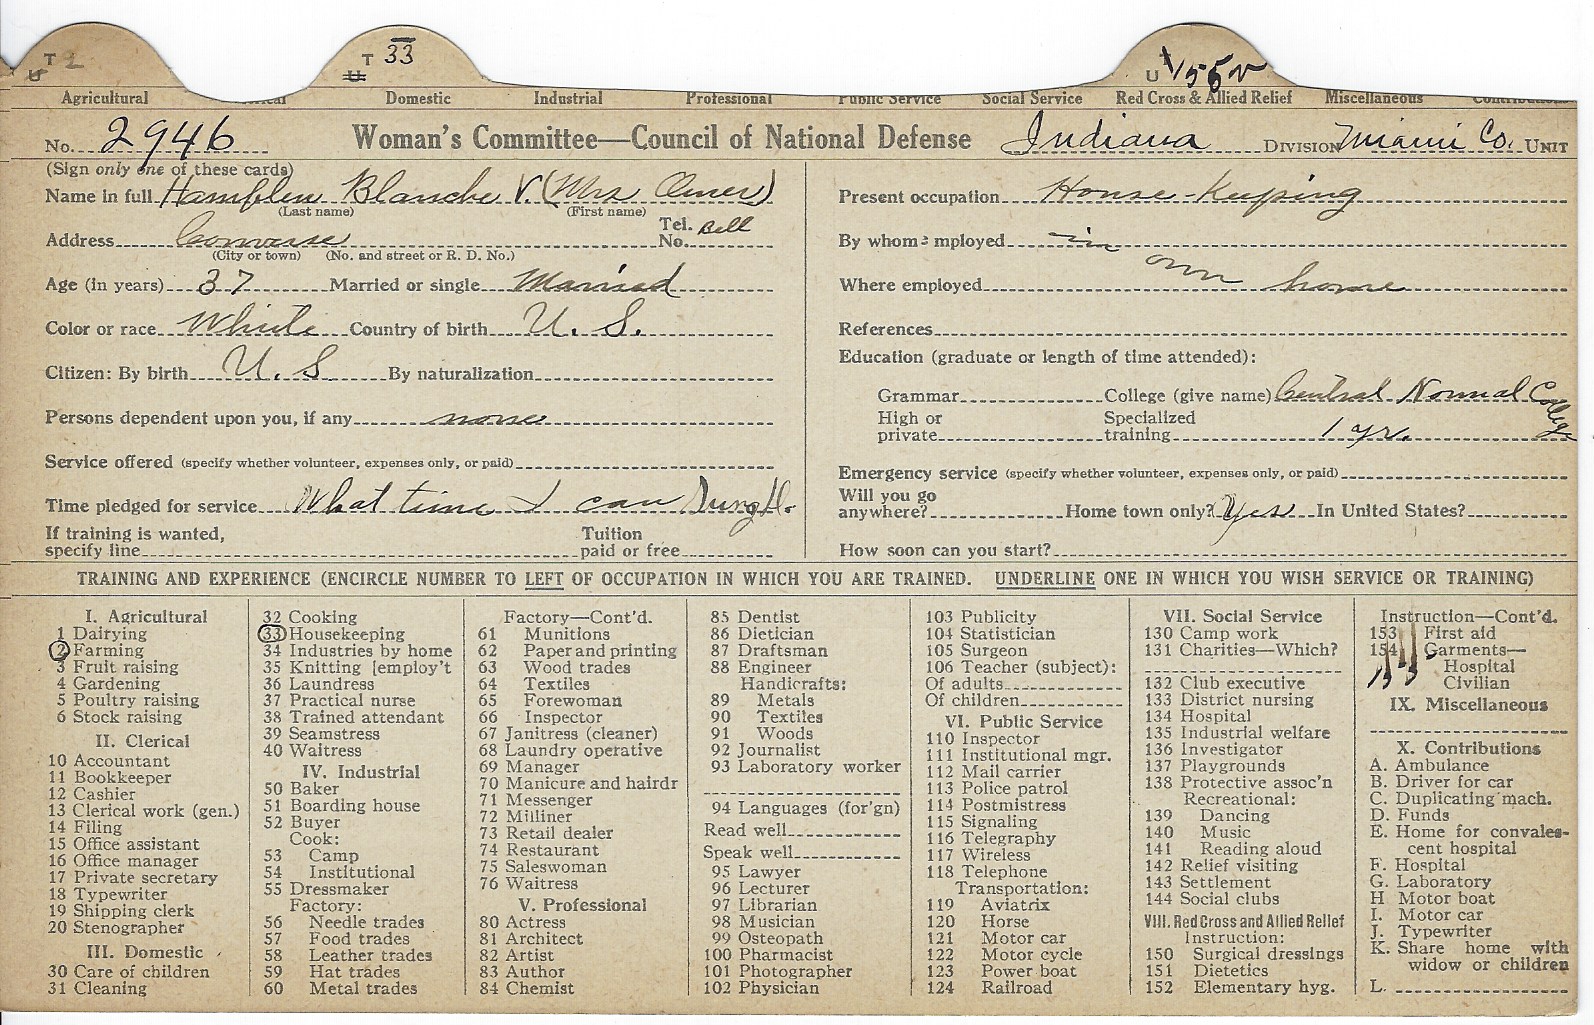 T 2
U
T 33
U
U
Agricultural Domestic Industrial Professional Public Service Social Service Red Cross & Allied Relief Miscellaneous
No. 2946 Woman's Committee—Council of National Defense Indiana DIVISION Miami Co. UNIT
(Sign only one of these cards)
Name in full Hamflen Blanche V. (Mrs Omer)
(Last name) (First name)
Address Converse Tel. No. Bell
(City or town) (No. and street or R. D. No.)
Age (in years) 37 Married or single Married
Color or race White Country of birth U. S.
Citizen: By birth U. S By naturalization
Persons dependent upon you, if any none
Service offered (specify whether volunteer, expenses only, or paid)
Time pledged for service What time I can
If training is wanted, specify line Tuition paid or free
Present occupation House-Keeping
By whom employed in
own
Where employed home
References
Education (graduate or length of time attended):
Grammar College (give name) Central Normal College
High or private Specialized training 1 yr.
Emergency service (specify whether volunteer, expenses only, or paid)
Will you go anywhere? Home town only? Yes In United States?
How soon can you start?
TRAINING AND EXPERIENCE (ENCIRCLE NUMBER TO LEFT OF OCCUPATION IN WHICH YOU ARE TRAINED. UNDERLINE ONE IN WHICH YOU WISH SERVICE OR TRAINING)
I. Agricultural
1 Dairying
2 Farming
3 Fruit raising
4 Gardening
5 Poultry raising
6 Stock raising
II. Clerical
10 Accountant
11 Bookkeeper
12 Cashier
13 Clerical work (gen.)
14 Filing
15 Office assistant
16 Office manager
17 Private secretary
18 Typewriter
19 Shipping clerk
20 Stenographer
III. Domestic
30 Care of children
31 Cleaning
32 Cooking
33 Housekeeping
34 Industries by home
35 Knitting [employ't
36 Laundress
37 Practical nurse
38 Trained attendant
39 Seamstress
40 Waitress
IV. Industrial
50 Baker
51 Boarding house
52 Buyer
Cook:
53 Camp
54 Institutional
55 Dressmaker
Factory:
56 Needle trades
57 Food trades
58 Leather trades
59 Hat trades
60 Metal trades
Factory—Cont'd.
61 Munitions
62 Paper and printing
63 Wood trades
64 Textiles
65 Forewoman
66 Inspector
67 Janitress (cleaner)
68 Laundry operative
69 Manager
70 Manicure and hairdr
71 Messenger
72 Milliner
73 Retail dealer
74 Restaurant
75 Saleswoman
76 Waitress
V. Professional
80 Actress
81 Architect
82 Artist
83 Author
84 Chemist
85 Dentist
86 Dietician
87 Draftsman
88 Engineer
Handicrafts:
89 Metals
90 Textiles
91 Woods
92 Journalist
93 Laboratory worker
94 Languages (for'gn)
Read well
Speak well
95 Lawyer
96 Lecturer
97 Librarian
98 Musician
99 Osteopath
100 Pharmacist
101 Photographer
102 Physician
103 Publicity
104 Statistician
105 Surgeon
106 Teacher (subject):
Of adults
Of children
VI. Public Service
110 Inspector
111 Institutional mgr.
112 Mail carrier
113 Police patrol
114 Postmistress
115 Signaling
116 Telegraphy
117 Wireless
118 Telephone
Transportation:
119 Aviatrix
120 Horse
121 Motor car
122 Motor cycle
123 Power boat
124 Railroad
VII. Social Service
130 Camp work
131 Charities—Which?
132 Club executive
133 District nursing
134 Hospital
135 Industrial welfare
136 Investigator
137 Playgrounds
138 Protective assoc'n
Recreational:
139 Dancing
140 Music
141 Reading aloud
142 Relief visiting
143 Settlement
144 Social clubs
VIII. Red Cross and Allied Relief
Instruction:
150 Surgical dressings
151 Dietetics
152 Elementary hyg.
Instruction—Cont'd.
153 First aid
154 Garments—
Hospital
Civilian
IX. Miscellaneous
X. Contributions
A. Ambulance
B. Driver for car
C. Duplicating mach.
D. Funds
E. Home for convalescent hospital
F. Hospital
G. Laboratory
H Motor boat
I. Motor car
J. Typewriter
K. Share home with widow or children
L.